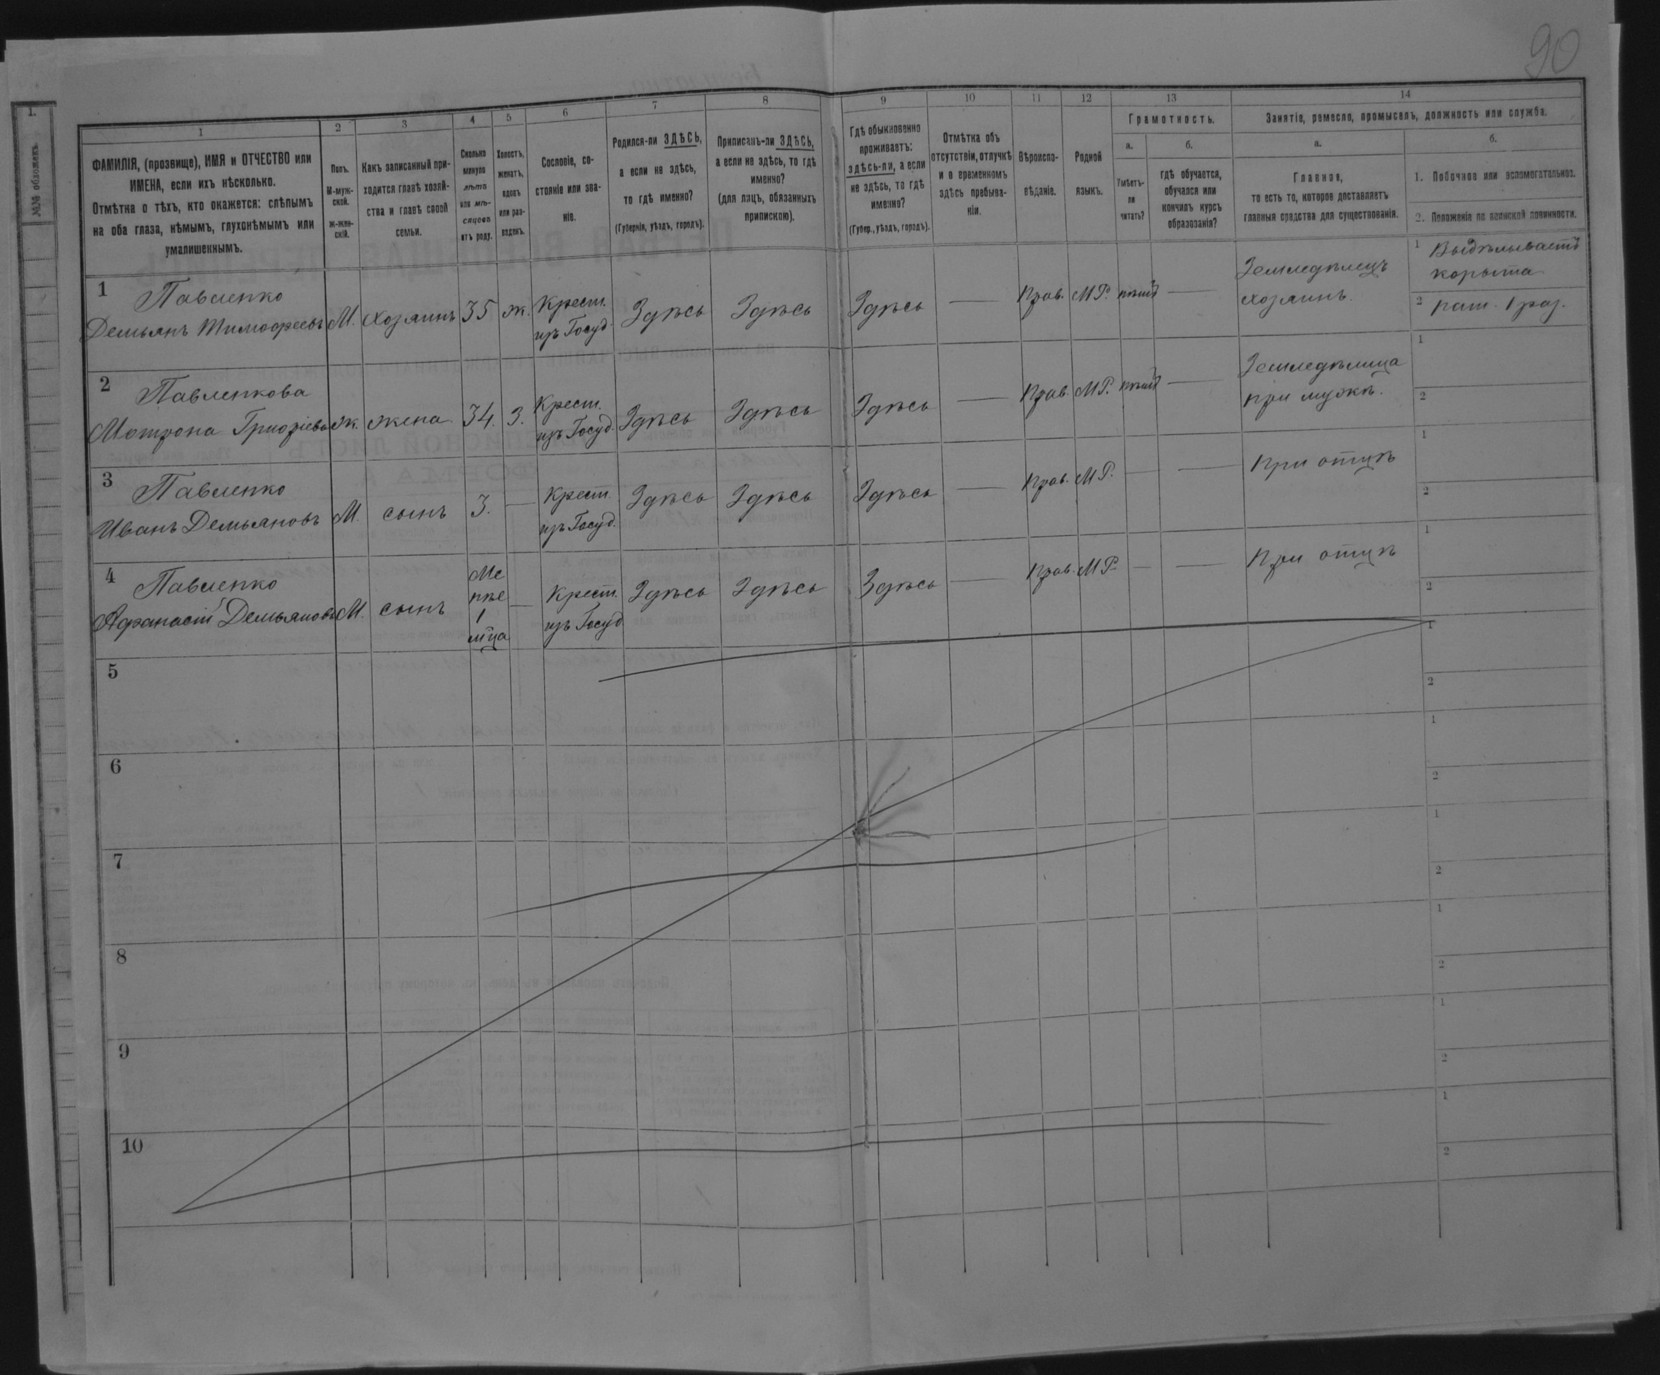 90
1.
№№ обложекъ.
1
2
3
4
5
6
7
8
9
10
11
12
13
14
ФАМИЛІЯ, (прозвище), ИМЯ и ОТЧЕСТВО или
ИМЕНА, если ихъ нѣсколько.
Отмѣтка о тѣхъ, кто окажется: слѣпымъ
на оба глаза, нѣмымъ, глухонѣмымъ или
умалишеннымъ.
Полъ.
М-муж-
ской.
Ж-жен-
скій.
Какъ записанный при-
ходится главѣ хозяй-
ства и главѣ своей
семьи.
Сколько
минуло
лѣтъ
или мѣ-
сяцевъ
отъ роду.
Холостъ,
женатъ,
вдовъ
или раз-
веденъ.
Сословіе, со-
стояніе или зва-
ніе.
Родился-ли ЗДѢСЬ,
а если не здѣсь,
то гдѣ именно?
(Губернія, уѣздъ, городъ).
Приписанъ-ли ЗДѢСЬ,
а если не здѣсь, то гдѣ
именно?
(для лицъ, обязанныхъ
припискою).
Гдѣ обыкновенно
проживаетъ:
здѣсь-ли, а если
не здѣсь, то гдѣ
именно?
(Губер., уѣздъ, городъ).
Отмѣтка объ
отсутствіи, отлучкѣ
и о временномъ
здѣсь пребыва-
ніи.
Вѣроиспо-
вѣданіе.
Родной
языкъ.
Грамотность.
а.
Умѣетъ-
ли
читать?
б.
гдѣ обучается,
обучался или
кончилъ курсъ
образованія?
Занятіе, ремесло, промыселъ, должность или служба.
а.
Главное,
то есть то, которое доставляетъ
главныя средства для существованія.
б.
1. Побочное или вспомогательное.
2. Положеніе по воинской повинности.
1 Павленко
Демьянъ Тимофеевъ М. хозяинъ 35 ж. Крест. изъ Госуд. Здѣсь Здѣсь Здѣсь — Прав. М.Р. нѣтъ — Земледѣлецъ хозяинъ.
1 Выдѣлываетъ корыта
2 рат. 1 раз.
2 Павленкова
Мотрона Григоріева ж. жена 34. З. Крест. изъ Госуд. Здѣсь Здѣсь Здѣсь — Прав. М.Р. нѣтъ — Земледѣлица при мужѣ.
1
2
3 Павленко
Иванъ Демьяновъ М. сынъ 3. — Крест. изъ Госуд. Здѣсь Здѣсь Здѣсь — Прав. М.Р. — — При отцѣ
1
2
4 Павленко
Афанасій Демьяновъ М. сынъ Ме нѣе 1 мѣца — Крест. изъ Госуд. Здѣсь Здѣсь Здѣсь — Прав. М.Р. — — При отцѣ
1
2
5
1
2
6
1
2
7
1
2
8
1
2
9
1
2
10
1
2